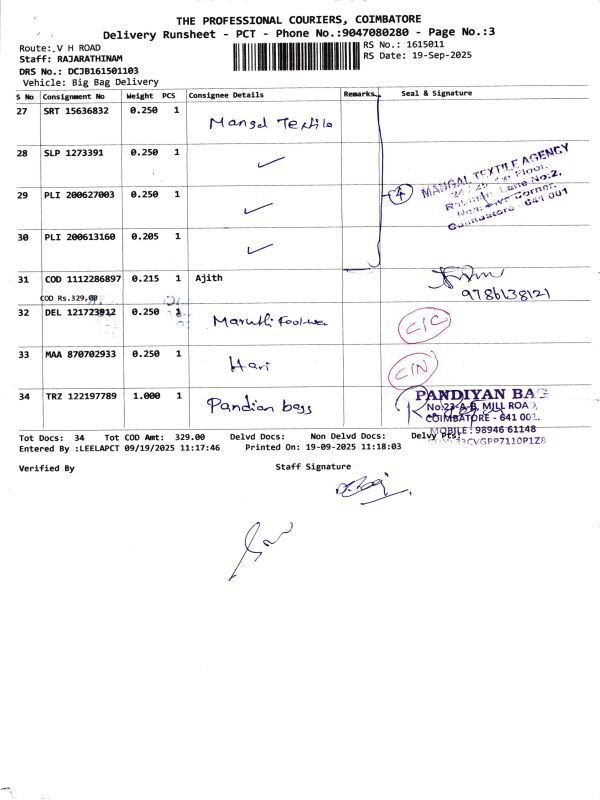 THE PROFESSIONAL COURIERS, COIMBATORE
Delivery Runsheet - PCT - Phone No.:9047080280 - Page No.:3
Route: V H ROAD
RS No.: 1615011
Staff: RAJARATHINAM
RS Date: 19-Sep-2025
DRS No.: DCJB161501103
Vehicle: Big Bag Delivery
S No Consignment No Weight PCS Consignee Details Remarks Seal & Signature
27 SRT 15636832 0.250 1 Mangal Textile
28 SLP 1273391 0.250 1 ✓
29 PLI 200627003 0.250 1 ✓ 4
MANGAL TEXTILE AGENCY
Floor,
Lane No:2,
Corner,
Coimbatore - 641 001
30 PLI 200613160 0.205 1 ✓
31 COD 1112286897 0.215 1 Ajith
9786138121
COD Rs.329.00
32 DEL 121723912 0.250 1 Maruthi CIC
33 MAA 870702933 0.250 1 Hari CIN
34 TRZ 122197789 1.000 1 Pandian bags
PANDIYAN BAG
No:23-A-B, MILL ROAD,
COIMBATORE - 641 001.
MOBILE : 98946 61148
33CVGPP7110P1Z8
Tot Docs: 34 Tot COD Amt: 329.00 Delvd Docs: Non Delvd Docs: Delvy Pts:
Entered By :LEELAPCT 09/19/2025 11:17:46 Printed On: 19-09-2025 11:18:03
Verified By Staff Signature